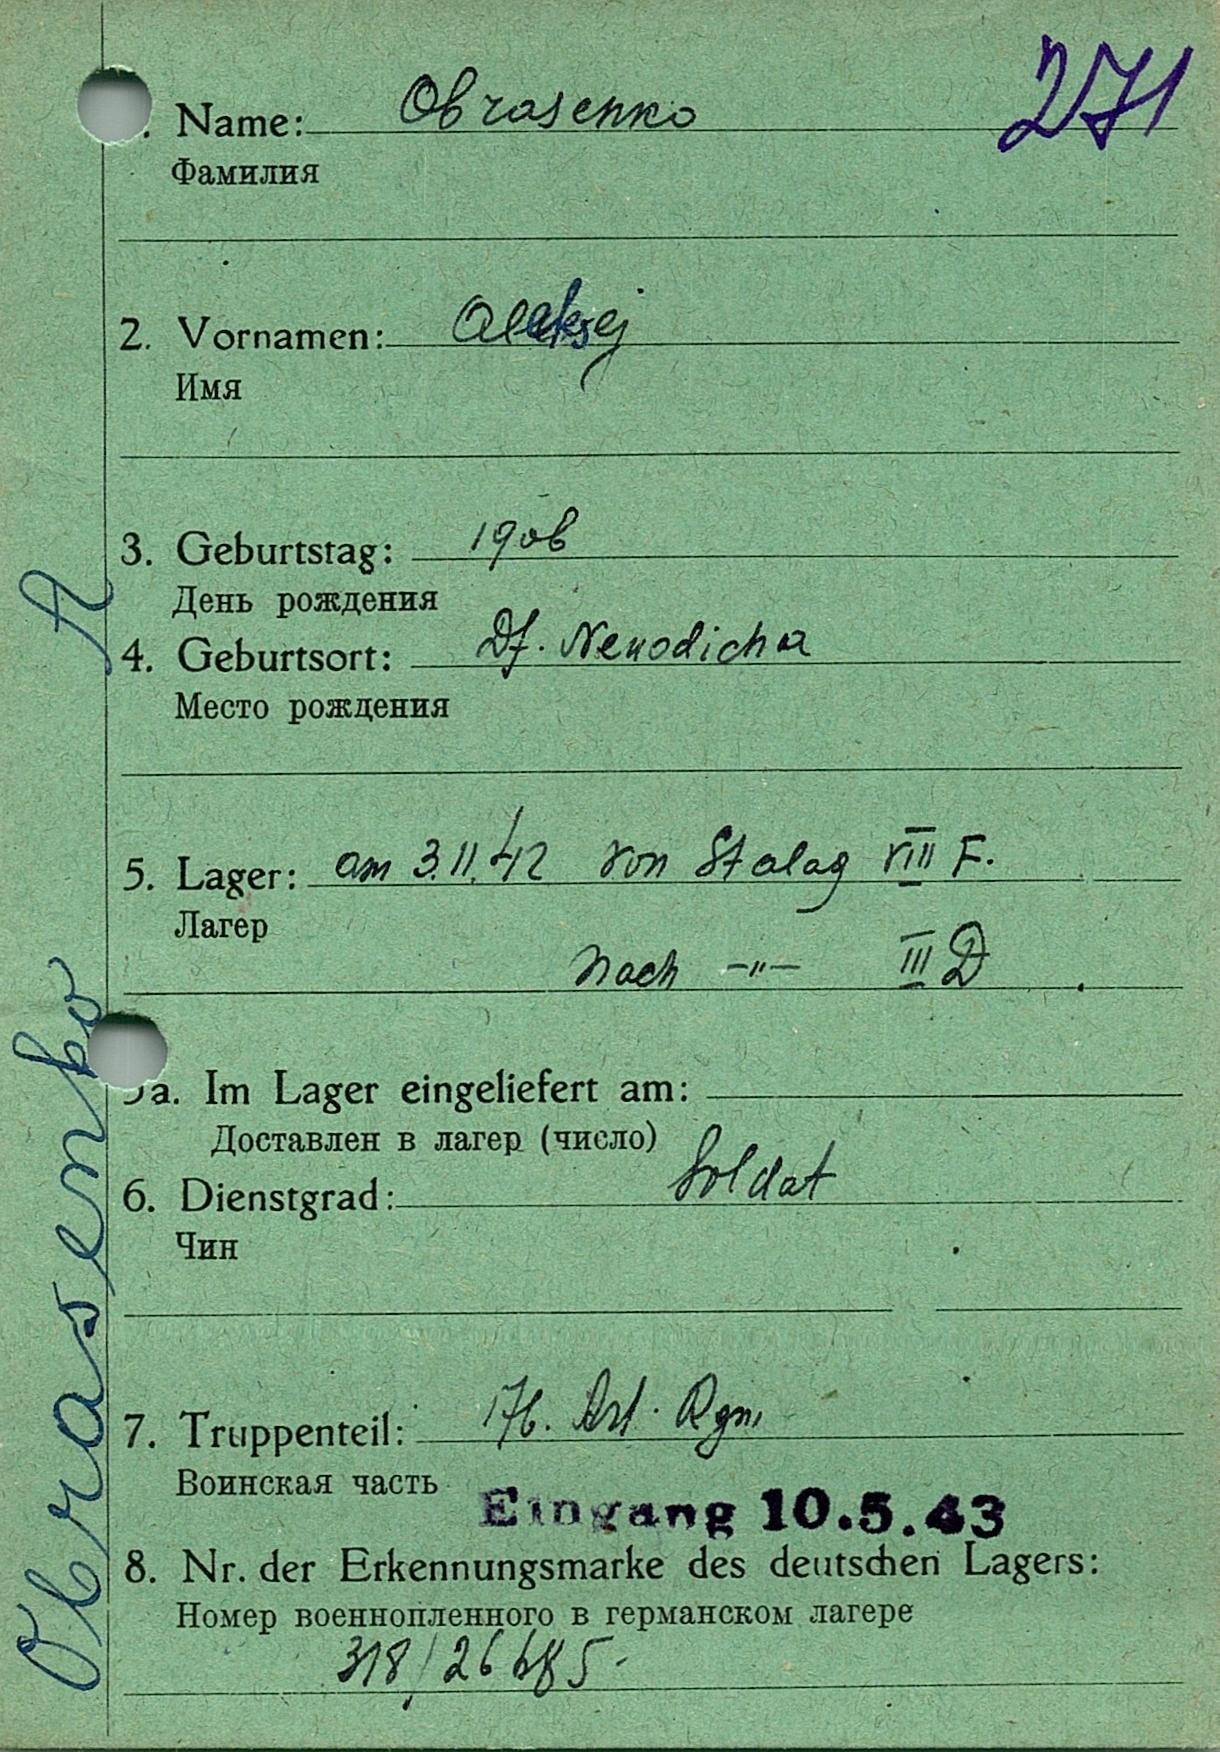 271
. Name: Obrasenko
Фамилия
2. Vornamen: Aleksej
Имя
3. Geburtstag: 1906
День рождения
4. Geburtsort: Df. Newodicha
Место рождения
5. Lager: am 3.11.42 von Stalag VIII F.
Лагер
nach -"- III D
a. Im Lager eingeliefert am:
Доставлен в лагер (число)
6. Dienstgrad: Soldat
Чин
7. Truppenteil: 176. Art. Rgm.
Воинская часть
Eingang 10.5.43
8. Nr. der Erkennungsmarke des deutschen Lagers:
Номер военнопленного в германском лагере
318/26685.
Obrasenko A